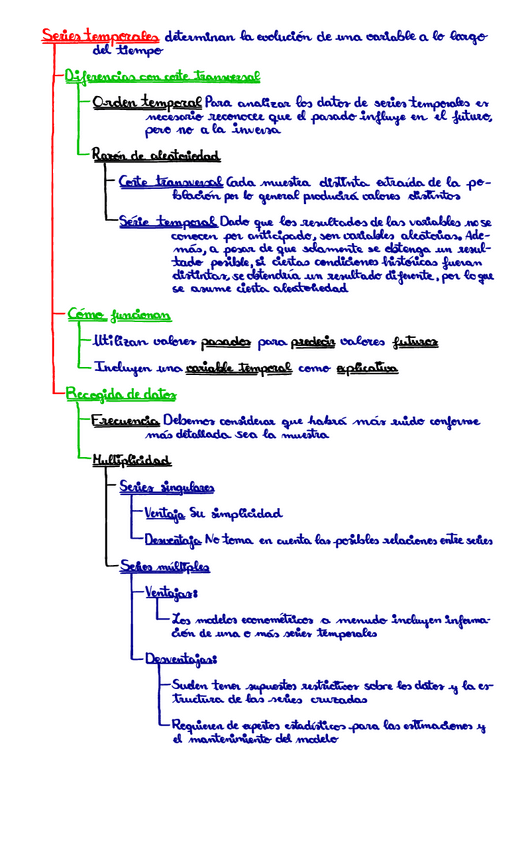 Series temporales determinan la evolución de una variable a lo largo
del tiempo
Diferencias con corte transversal
Orden temporal Para analizar los datos de series temporales es
necesario reconocer que el pasado influye en el futuro,
pero no a la inversa
Razón de aleatoriedad
Corte transversal Cada muestra distinta extraída de la po-
blación por lo general producirá valores distintos
Serie temporal Dado que los resultados de las variables no se
conocen por anticipado, son variables aleatorias. Ade-
más, a pesar de que solamente se obtenga un resul-
tado posible, si ciertas condiciones históricas fueran
distintas, se obtendría un resultado diferente, por lo que
se asume cierta aleatoriedad
Cómo funcionan
Utilizan valores pasados para predecir valores futuros
Incluyen una variable temporal como aplicativa
Recogida de datos
Frecuencia Debemos considerar que habrá más ruido conforme
más detallada sea la muestra
Multiplicidad
Series singulares
Ventaja Su simplicidad
Desventaja No toma en cuenta las posibles relaciones entre series
Series múltiples
Ventajas:
Los modelos econométricos a menudo incluyen informa-
ción de una o más series temporales
Desventajas:
Suelen tener supuestos restrictivos sobre los datos y la es-
tructura de las series cruzadas
Requieren de expertos estadísticos para las estimaciones y
el mantenimiento del modelo